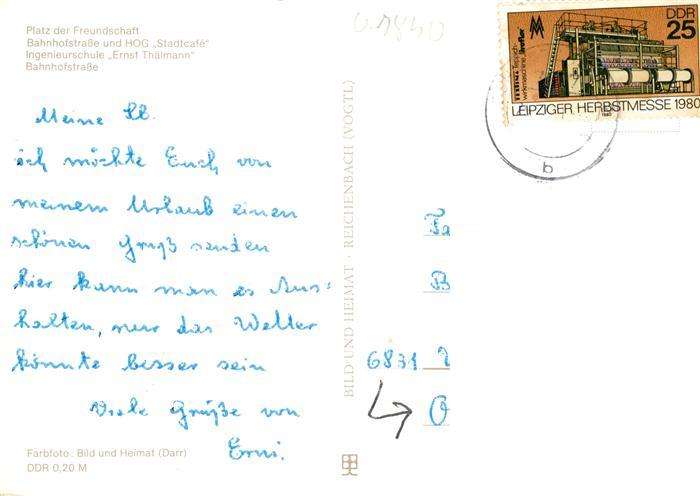 Platz der Freundschaft
Bahnhofstraße und HOG „Stadtcafé“
Ingenieurschule „Ernst Thälmann“
Bahnhofstraße
DDR
25
TEXTIMA Teppich-
wirkmaschine
LEIPZIGER HERBSTMESSE 1980
1980
b
Meine Lb.
ich möchte Euch von
meinem Urlaub einen
schönen Gruß senden
hier kann man es Aus-
halten, nur das Wetter
könnte besser sein
Viele Grüße von
Erni.
BILD UND HEIMAT · REICHENBACH (VOGTL)
Fa
B
6831
O
Farbfoto: Bild und Heimat (Darr)
DDR 0,20 M